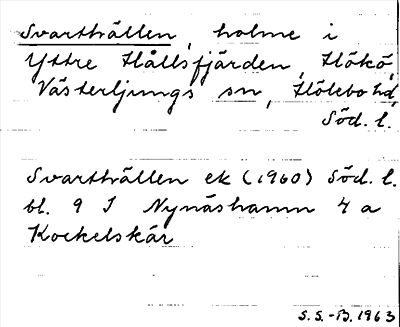 Svarthällen, holme i
Yttre Hållsfjärden, Hökö,
Västerljungs sn, Hölebo hd,
Söd. l.
Svarthällen ek (1960) Söd. l.
bl. 9 I Nynäshamn 4 a
Kockelskär
S.S.-B. 1963